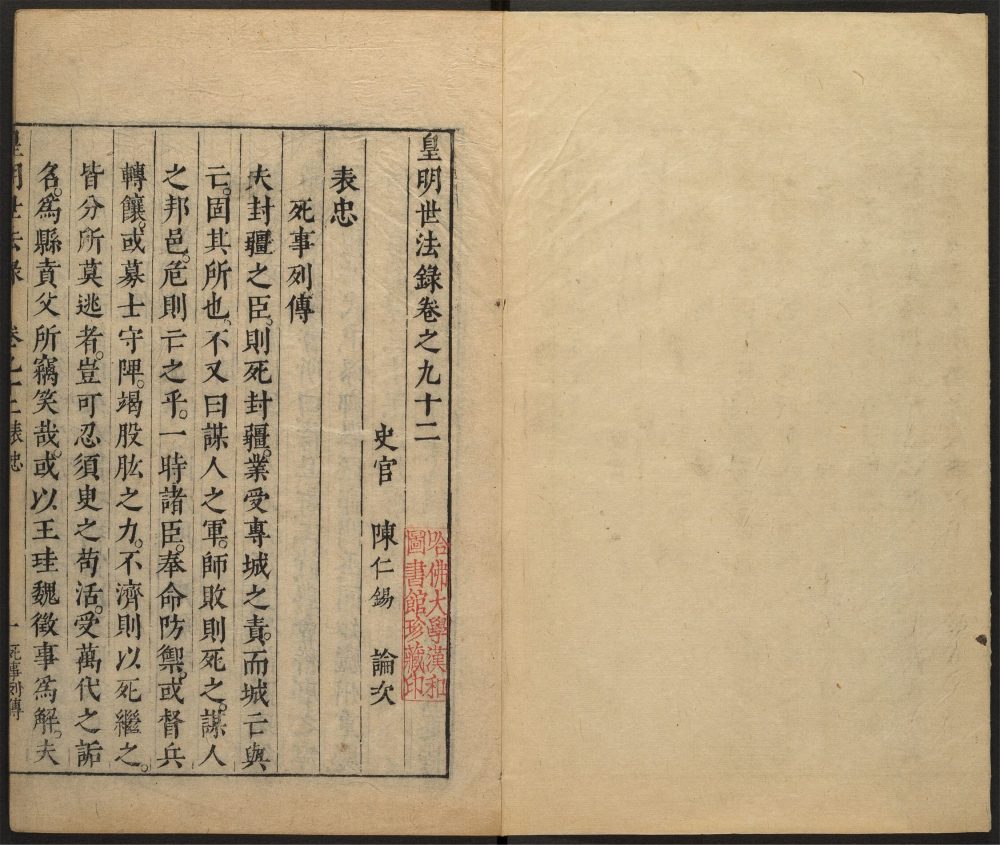 皇明世法錄卷之九十二
史官 陳仁錫 論次
表忠
死事列傳
夫封疆之臣。則死封疆。業受專城之責。而城亡與
亡。固其所也。不又曰謀人之軍。師敗則死之。謀人
之邦邑。危則亡之乎。一時諸臣。奉命防禦。或督兵
轉饟。或募士守陴。竭股肱之力。不濟則以死繼之。
皆分所莫逃者。豈可忍須臾之苟活。受萬代之詬
名。為縣賁父所竊笑哉。或以王珪魏徵事為解。夫
皇明世法錄 卷九十二 表忠 一 死事列傳
哈佛大學漢和
圖書館珍藏印